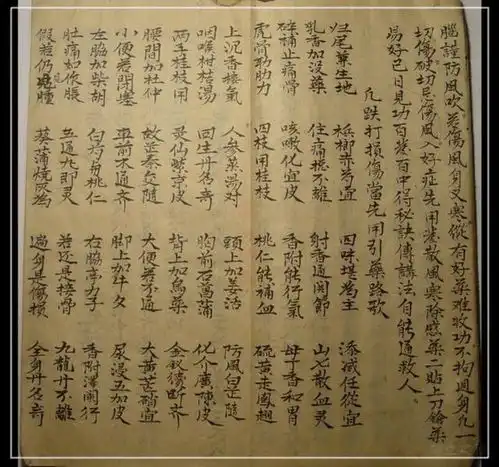 腦謹防風吹若傷風身又寒從有好藥难收功不拘周身凡一
切傷破切忌傷風入好症先用散風寒除感藥二貼上刀槍藥
易好已日見功百発百中得秘訣傳講法自能通救人
凡跌打損傷當先用引藥路歌
归尾兼生地 檳榔赤芍宜 四味堪為主 添減任從宜
乳香加没藥 住痛摠不離 射香通関節 山七散血灵
碎補止痛骨 咳嗽化宜皮 香附能行氣 母丁香和胃
虎骨助肋力 四枝用桂枝 桃仁能補血 硫黄走鳳翅
上沉香接氣 人參湯対 頭上加羌活 防風白芷隨
咽喉柑桔湯 回生丹名奇 胸前石菖蒲 化介廣陳皮
两手桂枝用 灵仙紫京皮 背上加烏藥 金釵續断齐
腰間加杜仲 故芷秦艽隨 大便若不通 大黄芒硝宜
小便若閉塞 車前木通齐 脚上加牛夕 尿浸五加皮
左脇加柴胡 白芍桃仁 右脇亭力子 香附澤蘭行
肚痛如作脹 五通丸即灵 若还是接骨 九龍丹不離
假若仍腫 蒲燒灰為 遍身是傷損 全身丹名奇